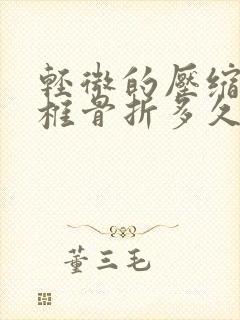 輕微的壓縮
框骨折多久
董三毛